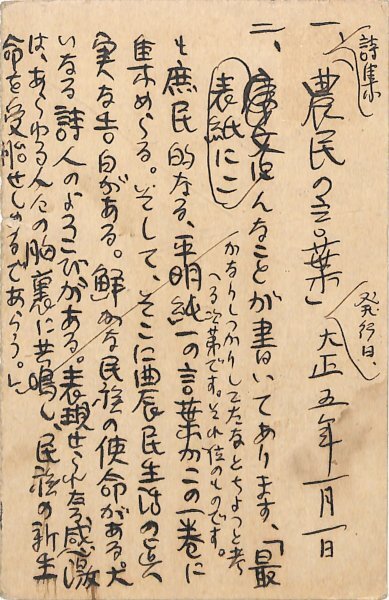 詩集
一、「農民の言葉」大正五年一月一日
発行日、
二、表紙にこんなことが書いてあります、「最
かなりしつかりしてたなとちょつと考
へる次第です。それ位のものです。
も庶民的なる、平明純一の言葉がこの一巻に
集めらる。そして、そこに農民生活の真
実な告白がある。鮮かな民族の使命がある。大
いなる詩人のよろこびがある。表現せられたる感激
は、あらゆる人の胸裏に共鳴し、民族の新生
命を受胎せしむるであらう。」